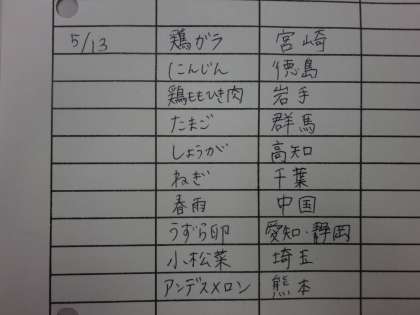 5/13 鶏ガラ 宮崎
にんじん 徳島
鶏ももひき肉 岩手
たまご 群馬
しょうが 高知
ねぎ 千葉
春雨 中国
うずら卵 愛知・静岡
小松菜 埼玉
アンデスメロン 熊本